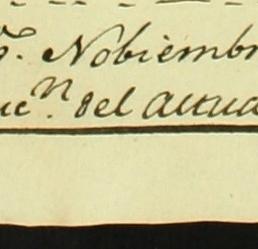 Nobiembr
del actua